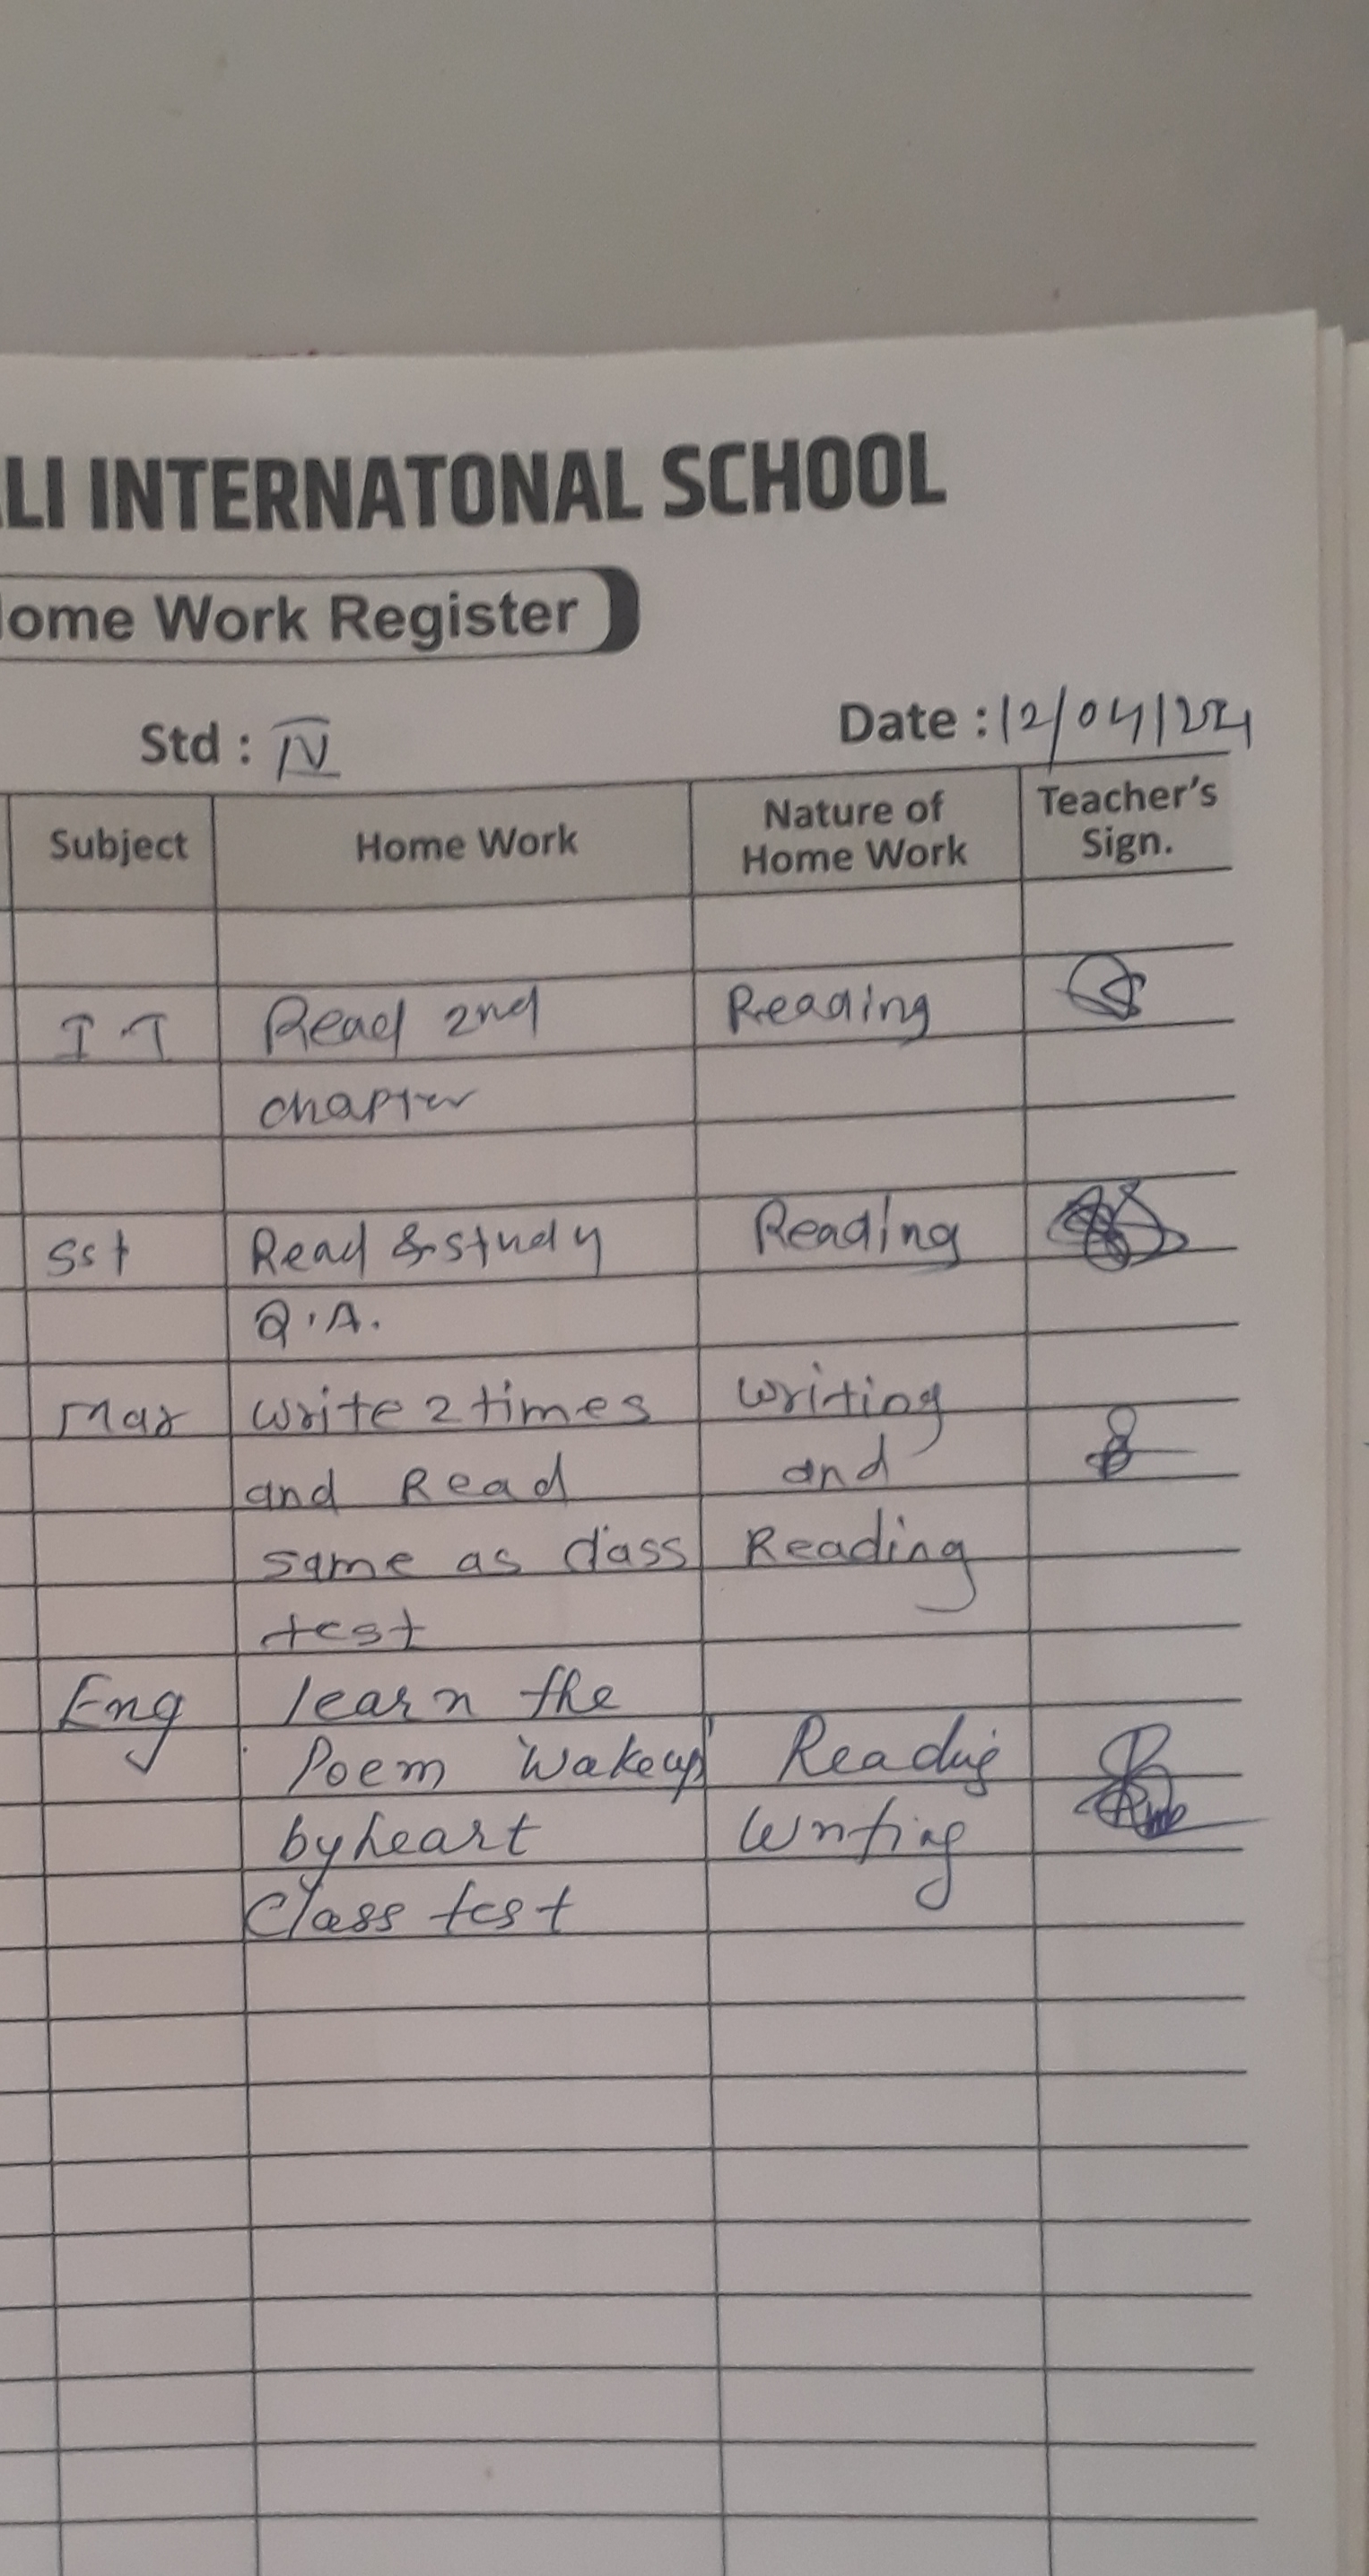 LI INTERNATONAL SCHOOL
ome Work Register
Std : IV
Date : 12/04/24
Subject Home Work Nature of Home Work Teacher's Sign.
I T Read 2nd Reading
chapter
Sst Read & study Reading
Q.A.
Mar write 2 times writing
and Read and
same as class Reading
test
Eng learn the
Poem 'Wakeup' Reading
byheart Writing
Class test